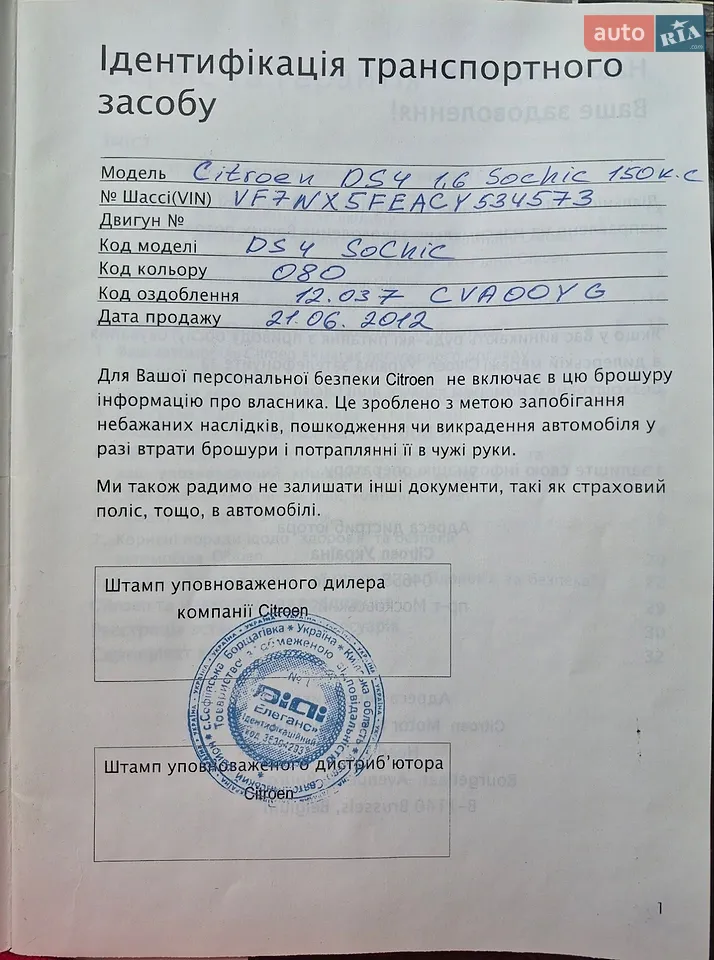 auto RIA .com
Ідентифікація транспортного
засобу
Модель Citroen DS4 1,6 Sochic 150 к.с
№ Шассі(VIN) VF7NX5FEACY534573
Двигун №
Код моделі DS4 SoChic
Код кольору 080
Код оздоблення 12.037 CVA00YG
Дата продажу 21.06.2012
Для Вашої персональної безпеки Citroen не включає в цю брошуру
інформацію про власника. Це зроблено з метою запобігання
небажаних наслідків, пошкодження чи викрадення автомобіля у
разі втрати брошури і потраплянні її в чужі руки.
Ми також радимо не залишати інші документи, такі як страховий
поліс, тощо, в автомобілі.
Штамп уповноваженого дилера
компанії Citroen
с.Софіївська Борщагівка * Україна * Київська область *
Товариство з обмеженою відповідальністю
ВіДі
Елеганс»
Ідентифікаційний
код
Штамп уповноваженого дистриб'ютора
Citroen
1